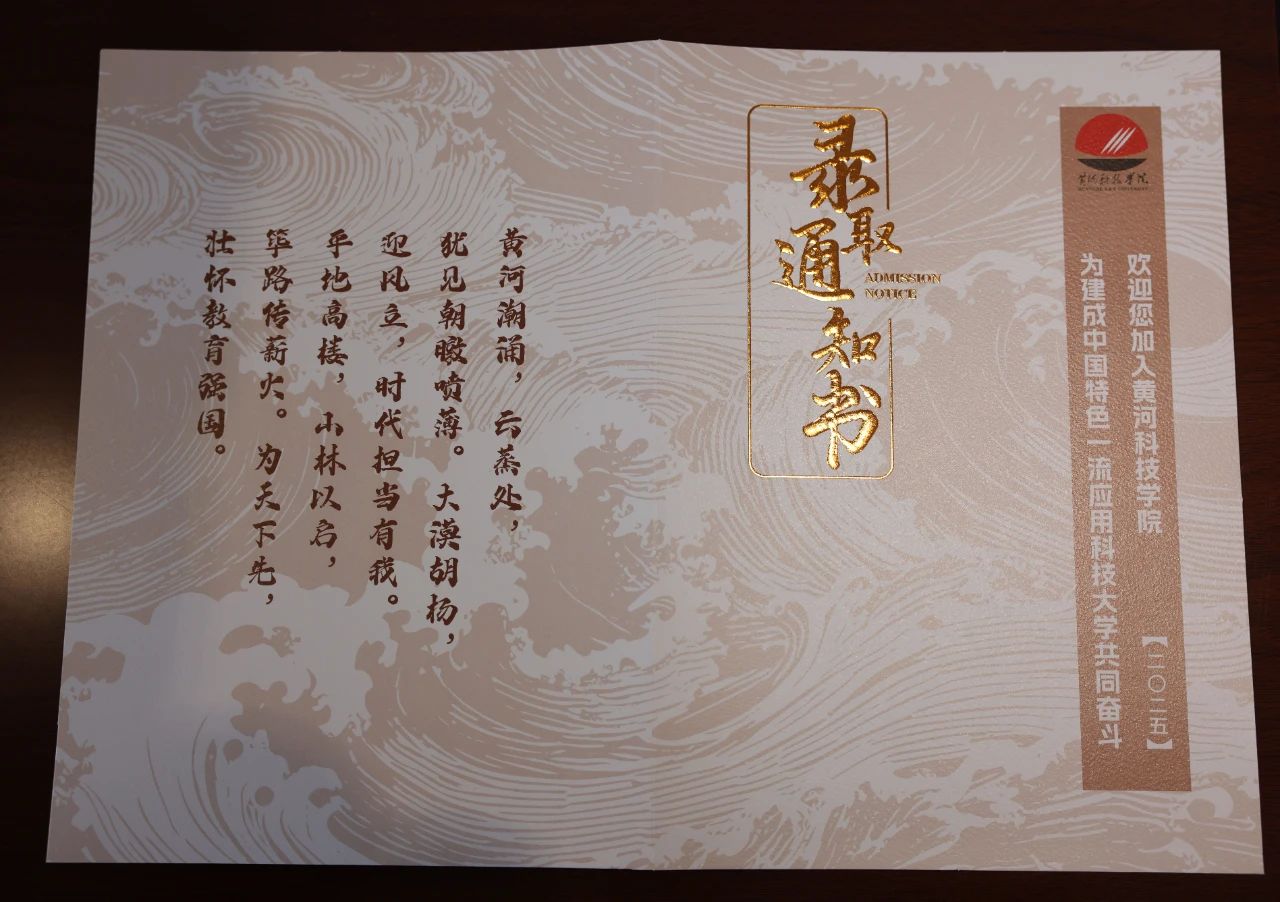 黄河科技学院
欢迎您加入黄河科技学院
【二〇二五】
为建成中国特色一流应用科技大学共同奋斗
录取通知书
ADMISSION
NOTICE
黄河潮涌，云蒸处，
犹见朝暾喷薄。大漠胡杨，
迎风立，时代担当有我。
平地高楼，山林以启，
筚路传薪火。为天下先，
壮怀教育强国。